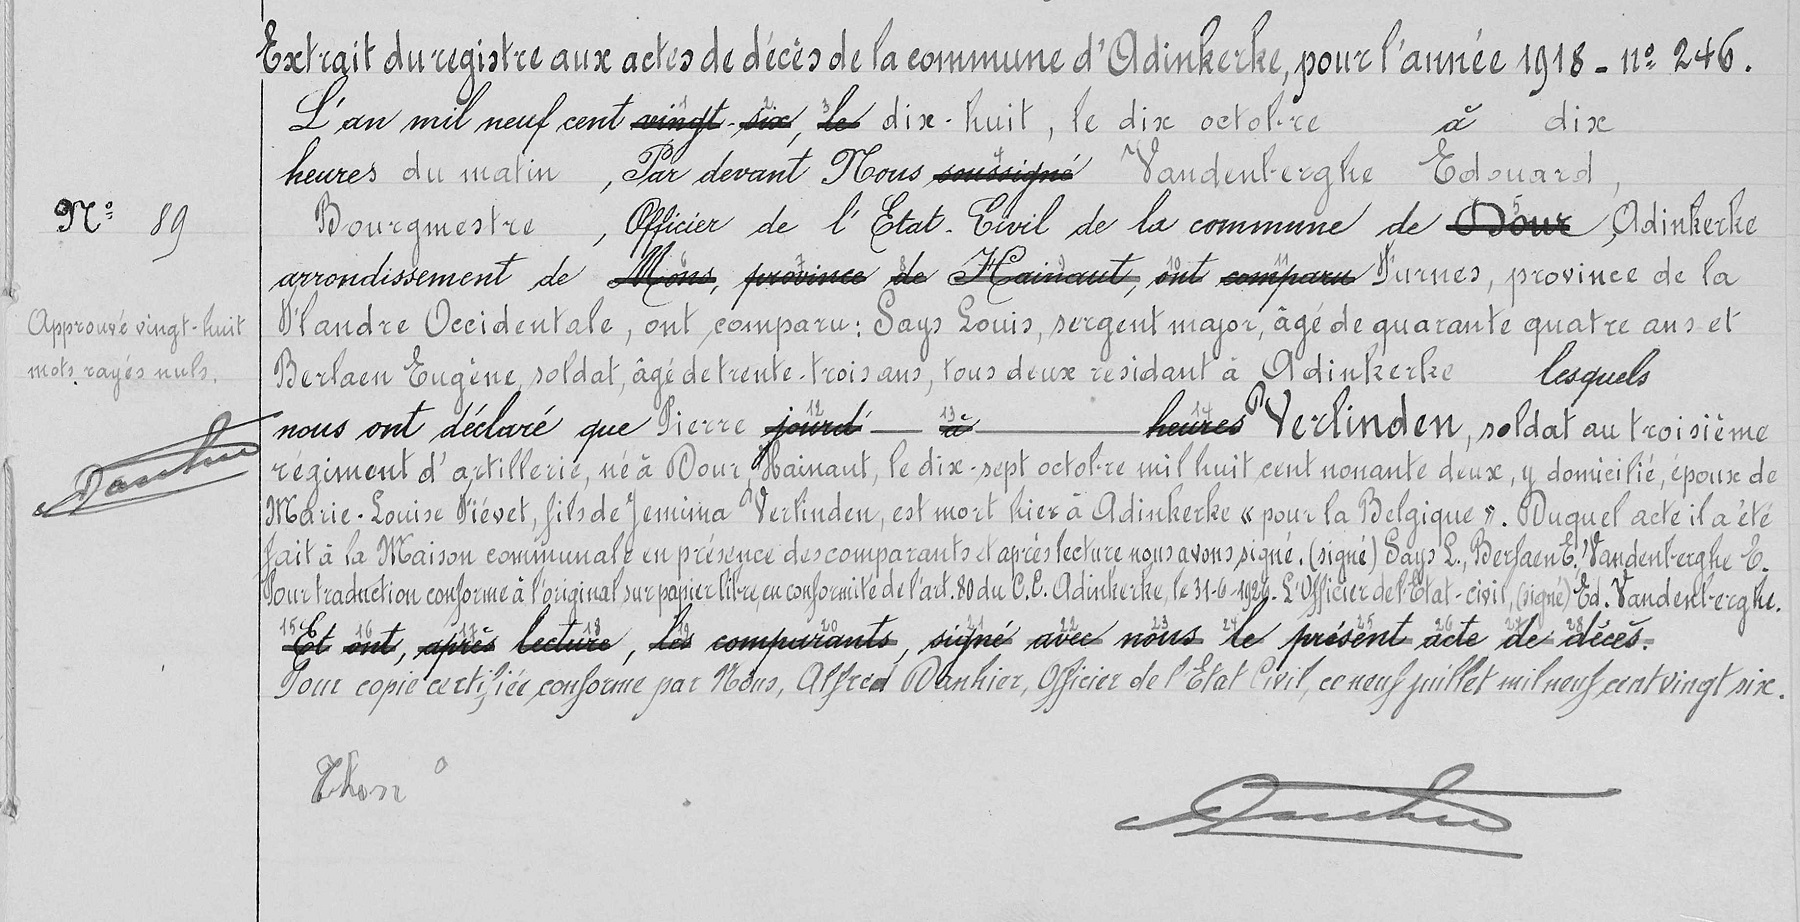 Extrait du registre aux actes de décès de la commune d'Adinkerke, pour l'année 1918 - nº 246.
L'an mil neuf cent vingt-six, le dix-huit, le dix octobre à dix
heures du matin, Par devant Nous soussigné Vandenberghe Edouard,
Nº 89
Bourgmestre, Officier de l'Etat-Civil de la commune de Dour, Adinkerke
arrondissement de Mons, province de Hainaut, ont comparu Furnes, province de la
Approuvé vingt-huit
mots rayés nuls.
Flandre Occidentale, ont comparu: Says Louis, sergent major, âgé de quarante quatre ans et
Berlaen Eugène, soldat, âgé de trente-trois ans, tous deux résidant à Adinkerke lesquels
nous ont déclaré que Pierre jourd à heures Verlinden, soldat au troisième
régiment d'artillerie, né à Dour, Hainaut, le dix-sept octobre mil huit cent nonante deux, y domicilié, époux de
Marie-Louise Piévet, fils de Jemima Verlinden, est mort hier à Adinkerke « pour la Belgique ». Duquel acte il a été
fait à la Maison communale en présence des comparants et après lecture nous avons signé. (signé) Says L., Berlaen E., Vandenberghe E.
Pour traduction conforme à l'original sur papier libre, en conformité de l'art. 80 du C.C. Adinkerke, le 31-6-1926. L'Officier de l'Etat-civil, (signé) Ed. Vandenberghe.
Et ont, après lecture, les comparants, signé avec nous le présent acte de décès.
Pour copie certifiée conforme par Nous, Alfred Danhier, Officier de l'Etat Civil, ce neuf juillet mil neuf cent vingt six.